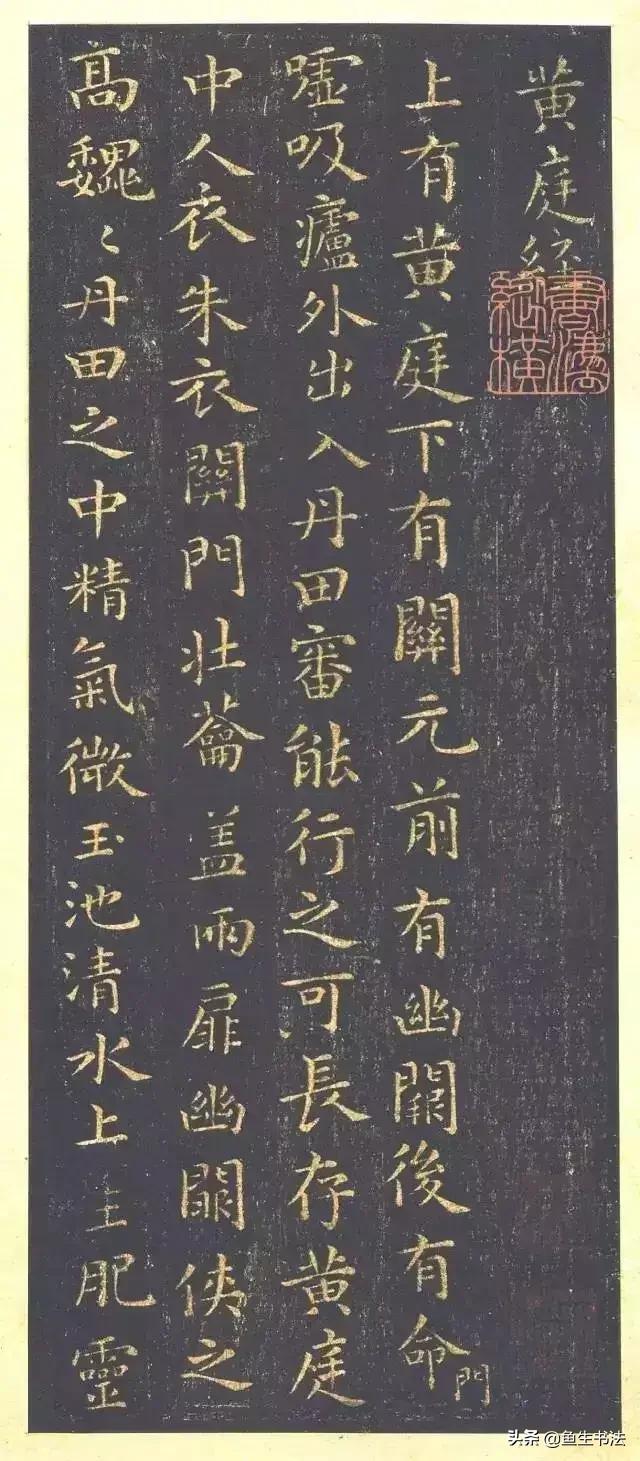 黄庭經
上有黄庭下有關元前有幽闕後有命門
嘘吸廬外出入丹田審能行之可長存黄庭
中人衣朱衣關門壯蘥盖兩扉幽闕侠之
高魏〻丹田之中精氣微玉池清水上生肥靈
头条 @鱼生书法